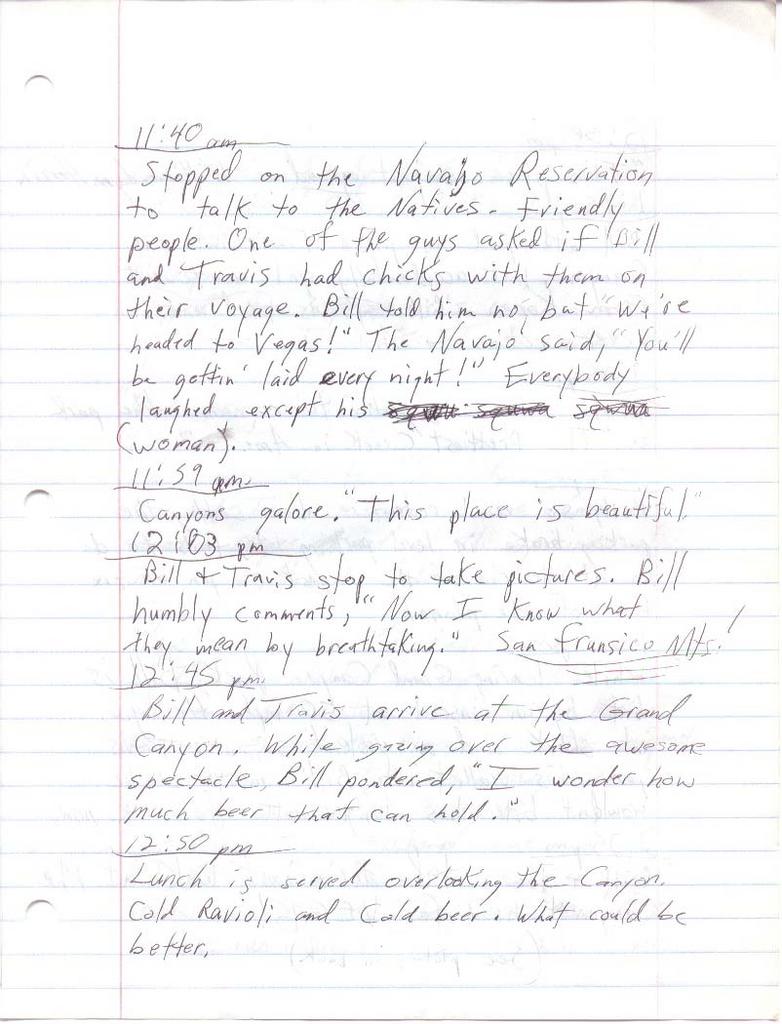 11:40 am
Stopped on the Navahjo Reservation
to talk to the Natives. Friendly
people. One of the guys asked if Bill
and Travis had chicks with them on
their voyage. Bill told him no, but "We're
headed to Vegas!" The Navajo said, "You'll
be gettin' laid every night!" Everybody
laughed except his
(woman).
11:59 am
Canyons galore. "This place is beautiful."
12:03 pm
Bill & Travis stop to take pictures. Bill
humbly comments, "Now I know what
they mean by breathtaking." San Fransico Mts.!
12:45 pm.
Bill and Travis arrive at the Grand
Canyon. While gazing over the awesome
spectacle, Bill pondered, "I wonder how
much beer that can hold."
12:50 pm
Lunch is served overlooking the Canyon.
Cold Ravioli and Cold beer. What could be
better.